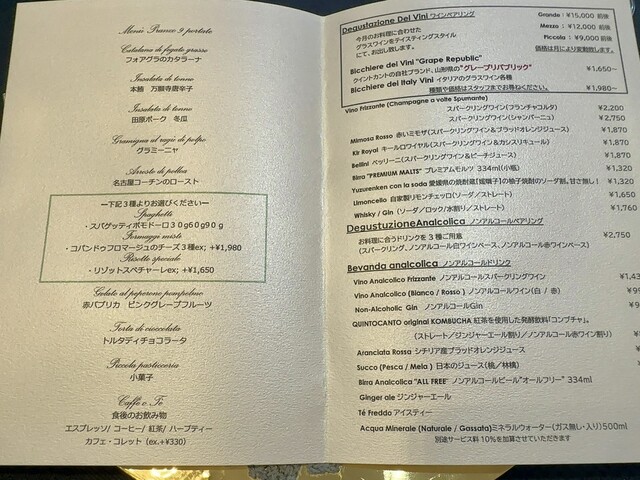 Menù Pranzo 9 portate
Catalana di fegato grasso
フォアグラのカタラーナ
Insalata di tonno
本鮪 万願寺唐辛子
Insalata di tonno
田原ポーク 冬瓜
Gramigna al ragù di polpo
グラミーニャ
Arrosto di pollo
名古屋コーチンのロースト
ー下記3種よりお選びくださいー
Spaghetti
・スパゲッティポモドーロ30g60g90g
Formaggi misti
・コパンドゥフロマージュのチーズ3種ex; +¥1,980
Risotto speciale
・リゾットスペチャーレex; +¥1,650
Gelato al peperone pompelmo
赤パプリカ ピンクグレープフルーツ
Torta di cioccolata
トルタディチョコラータ
Piccola pasticceria
小菓子
Caffè o Tè
食後のお飲み物
エスプレッソ/ コーヒー/ 紅茶/ ハーブティー
カフェ・コレット (ex.+¥330)
Degustazione Del Vini ワインペアリング
Grande: ¥15,000 前後
今月のお料理に合わせた
Mezzo: ¥12,000 前後
グラスワインをテイスティングスタイル
Piccola: ¥9,000 前後
にて、お出し致します。
価格は月により変動致します。
Bicchiere dei Vini "Grape Republic"
クイントカントの自社ブランド、山形県の"グレープリパブリック" ¥1,650~
Bicchiere dei Italy Vini イタリアのグラスワイン各種
種類や価格はスタッフまでお尋ねください。 ¥1,980~
Vino Frizzonte (Champagne a volte Spumante)
スパークリングワイン(フランチャコルタ) ¥2,200
スパークリングワイン(シャンパーニュ) ¥2,750
Mimosa Rosso 赤いミモザ(スパークリングワイン&ブラッドオレンジジュース) ¥1,870
Kir Royal キールロワイヤル(スパークリングワイン&カシスリキュール) ¥1,870
Bellini ベッリーニ(スパークリングワイン&ピーチジュース) ¥1,870
Birra "PREMIUM MALTS" プレミアムモルツ 334ml(小瓶) ¥1,320
Yuzurenken con la soda 愛媛県の焼酎蔵【媛囃子】の柚子焼酎のソーダ割。甘さ無し! ¥1,320
Limoncello 自家製リモンチェッロ(ソーダ/ストレート) ¥1,650
Whisky / Gin (ソーダ/ロック/水割り/ストレート) ¥1,760
DegustuzioneAnalcolica ノンアルコールペアリング
お料理に合うドリンクを3種ご用意 ¥2,750
(スパークリング、ノンアルコール白ワインベース、ノンアルコール赤ワインベース)
Bevanda analcolica ノンアルコールドリンク
Vino Analcolico Frizzante ノンアルコールスパークリングワイン ¥1,43
Vino Analcolico (Blanco / Rosso ) ノンアルコールワイン(白 / 赤)
Non-Alcoholic Gin ノンアルコールGin
QUINTOCANTO original KOMBUCHA 紅茶を使用した発酵飲料「コンブチャ」。
(ストレート/ジンジャーエール割り/ノンアルコール赤ワイン割り)
Aranciata Rossa シチリア産ブラッドオレンジジュース
Succo (Pesca / Mela ) 日本のジュース(桃/林檎)
Birra Analcolica "ALL FREE" ノンアルコールビール"オールフリー" 334ml
Ginger ale ジンジャーエール
Té Freddo アイスティー
Acqua Minerale (Naturale / Gassata)ミネラルウォーター(ガス無し・入り)500ml
別途サービス料10%を加算させていただきます